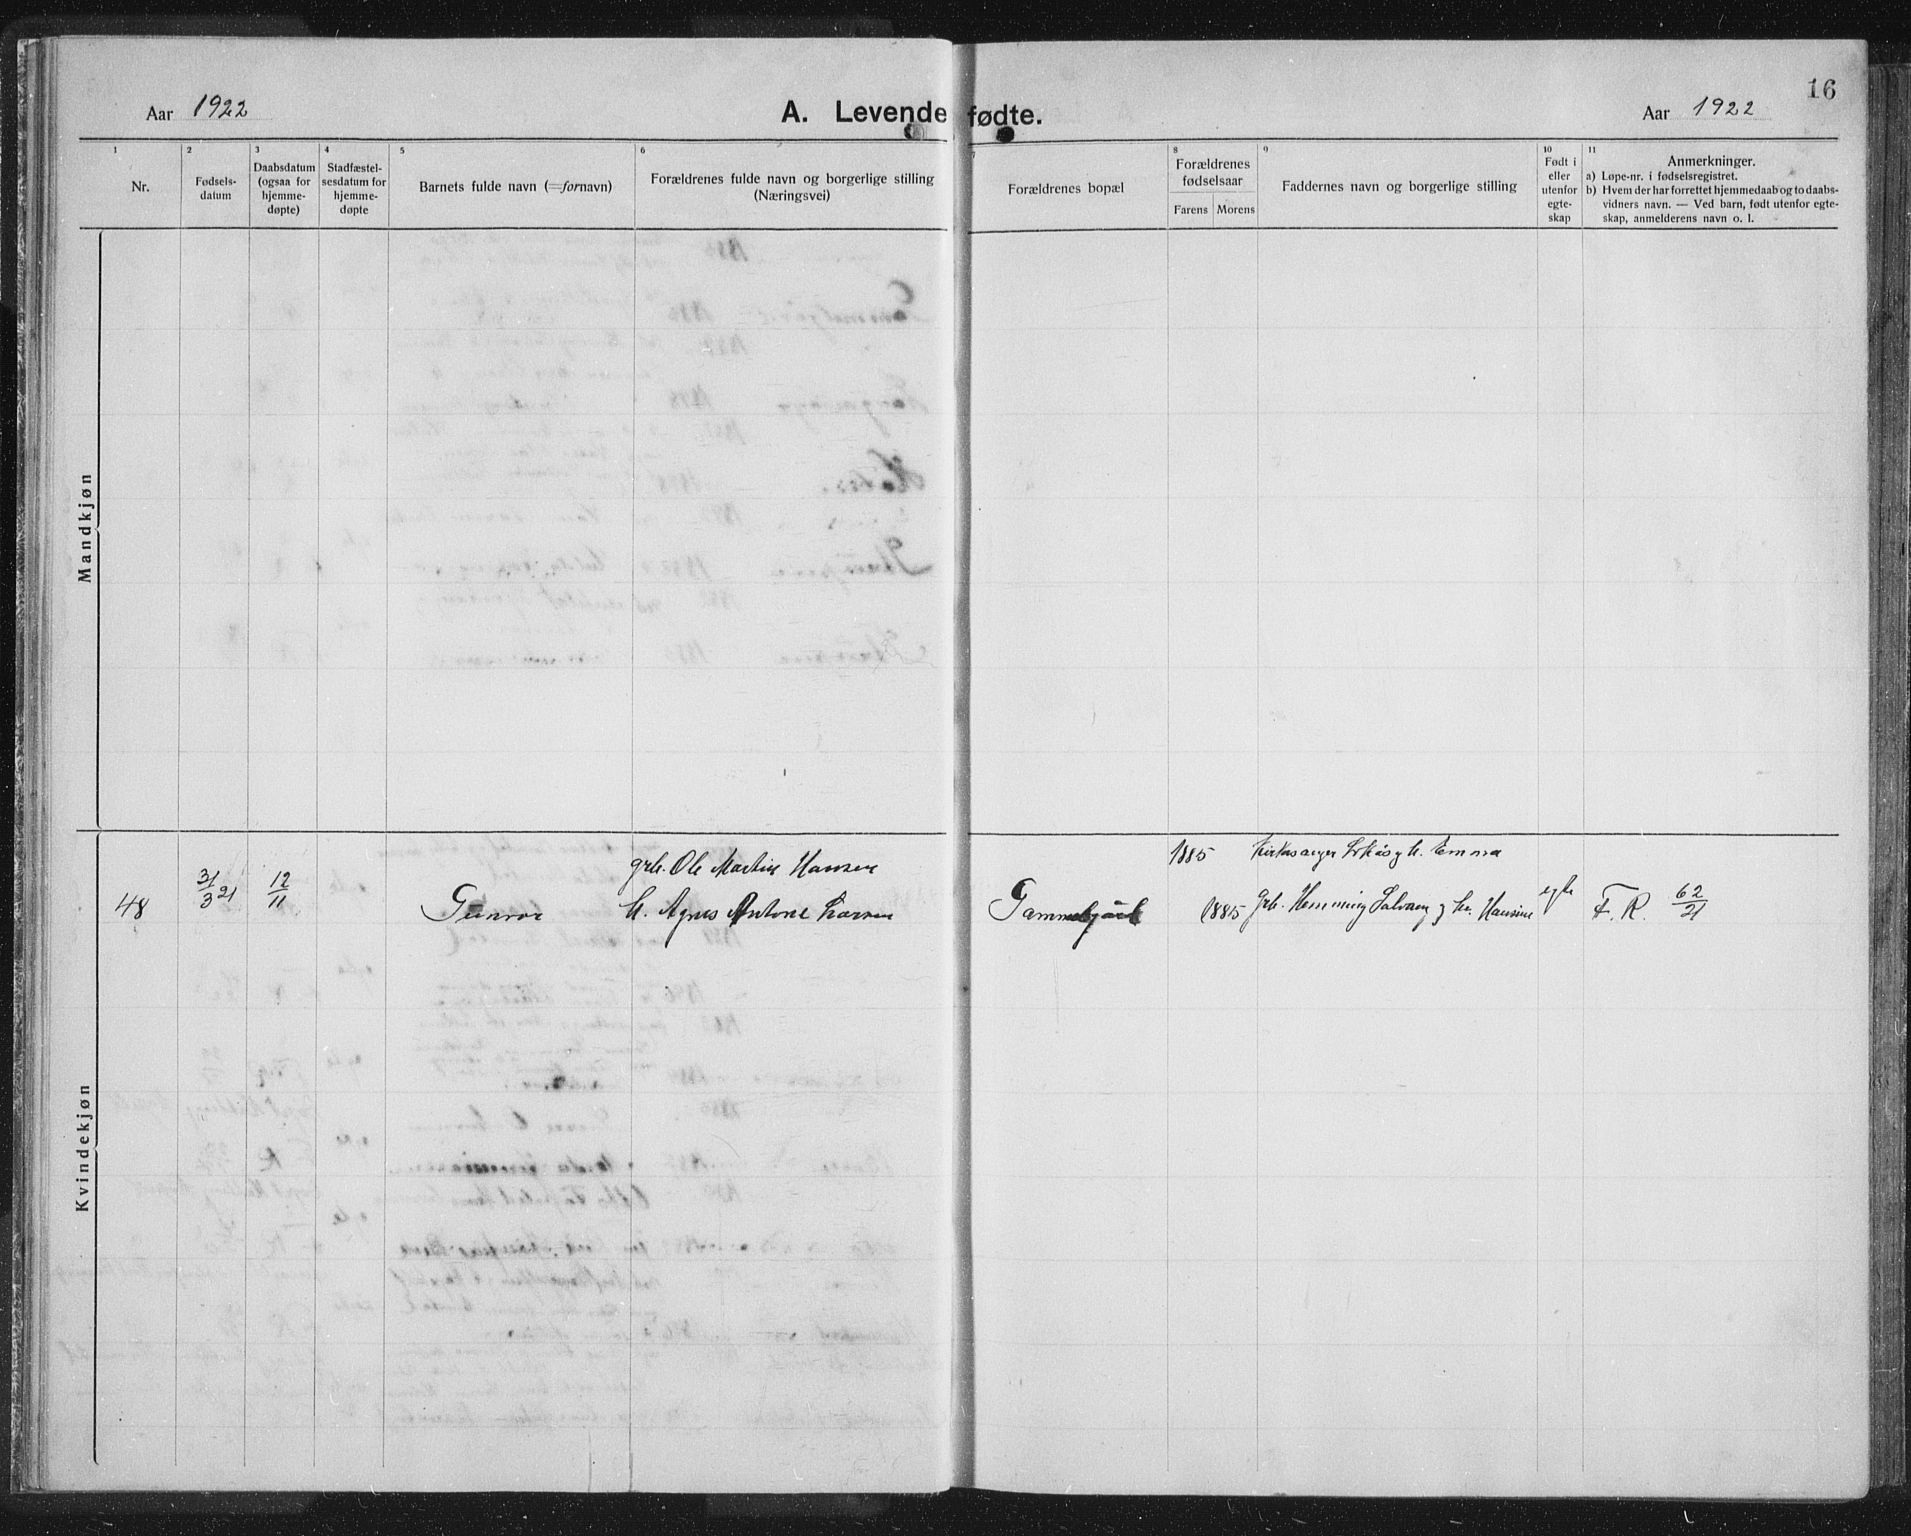 16
Aar 1922
A. Levende fødte.
Aar 1922
1
2
3
4
5
6
7
8
9
10
11
Nr.
Fødsels-
datum
Daabsdatum
(ogsaa for
hjemme-
døpte)
Stadfæstel-
sesdatum for
hjemme-
døpte
Barnets fulde navn (=fornavn)
Forældrenes fulde navn og borgerlige stilling
(Næringsvei)
Forældrenes bopæl
Forældrenes
fødselsaar
Farens Morens
Faddernes navn og borgerlige stilling
Født i
eller
utenfor
egte-
skap
Anmerkninger.
a) Løpe-nr. i fødselsregistret.
b) Hvem der har forrettet hjemmedaab og to daabs-
vidners navn. — Ved barn, født utenfor egte-
skap, anmelderens navn o. l.
Mandkjøn
Kvindekjøn
48
31/3 21
12/11
Gunvor
grb. Ole Martin Hansen
h. Agnes Antone Larsen
Gammelgård
1885
1885
Kirkesanger h. Emma
grb. Hemming og h. Hansine
egte
F. R. 62/21